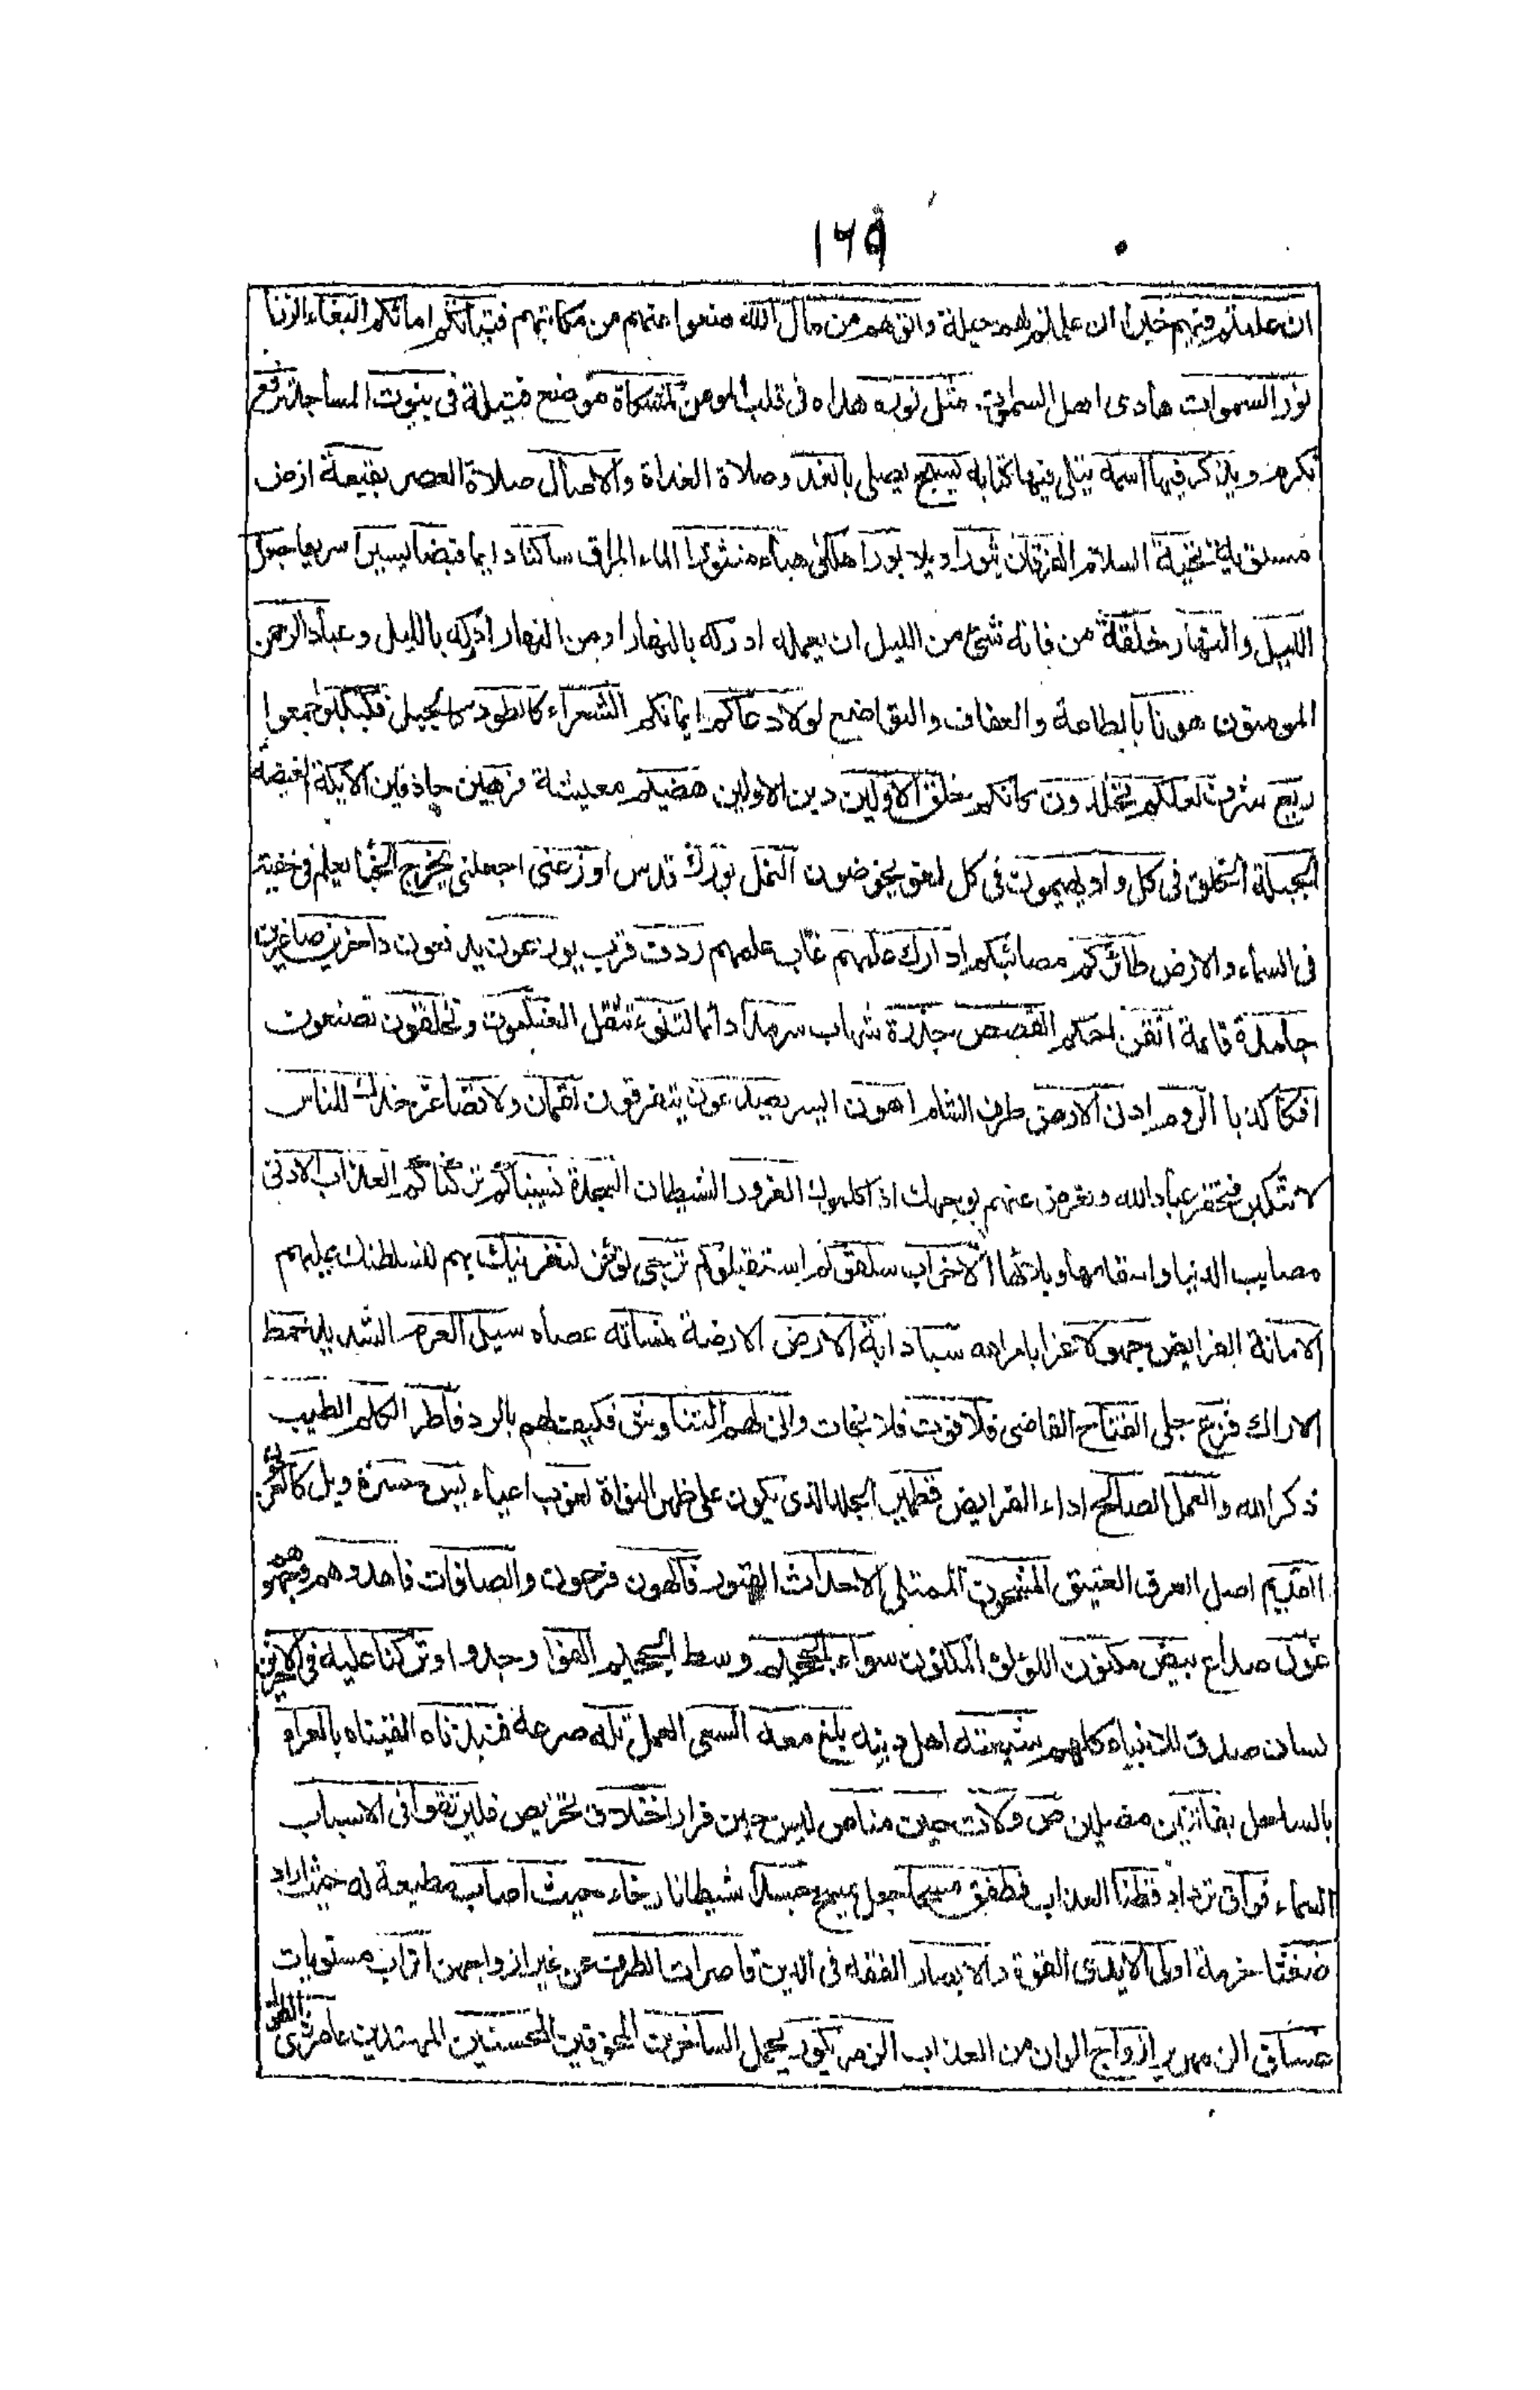 ١٦٩
ان علمتم فيهم خيرا ان علمتم لهم حيلة واتوهم من مال الله ضعوا عنهم من مكاتبتهم فتياتكم امائكم البغاء الزنا
نور السموات هادى اهل السموات مثل نوره هداه فى قلب المومن كمشكاة موضع فتيلة فى بيوت المساجد ترفع
تكرم ويذكر فيها اسمه يتلى فيها كتابه يسبح يصلى بالغدو صلاة الغداة والاصال صلاة العصر بقيعة ارض
مستوية تحية السلام الفرقان ثبورا ويلا بورا هلكى هباء منثورا الماء المهراق ساكنا دايما قبضا يسيرا سريعا جعل
الليل والنهار خلفة من فاته شئ من الليل ان يعمله ادركه بالنهار او من النهار ادركه بالليل وعباد الرحمن
المومنون هونا بالطاعة والعفاف والتواضع لولا دعاكم ايمانكم الشعراء كالطود كالجبل فكبكبوا جمعوا
ريع شرف لعلكم تخلدون كانكم خلق الاولين دين الاولين هضيم معيشة فرهين حاذقين الايكة الغيضة
الجبلة الخلق فى كل واد يهيمون فى كل لغو يخوضون النمل بورك قدس اوزعنى اجعلنى يخرج الخبأ يعلم كل خفية
فى السماء والارض طائركم مصائبكم ادارك علمهم غاب علمهم ردف قرب يوزعون يدفعون داخرين صاغرين
جامدة قائمة اتقن احكم القصص جذوة شهاب سرمدا دائما لتنوء تثقل العنكبوت وتخلقون تصنعون
افكا كذبا الروم ادنى الارض طرف الشام اهون ايسر يصدعون يتفرقون لقمان ولا تصاعر خدك للناس
لا تتكبر فتحقر عباد الله وتعرض عنهم بوجهك اذا كلموك الغرور الشيطان السجدة نسيناكم تركناكم العذاب الادنى
مصايب الدنيا واسقامها وبلائها الاحزاب سلقوكم استقبلوكم ترجى تؤخر لنغرينك بهم لنسلطنك عليهم
الامانة الفرايض جهولا غرا بامر الله سبا دابة الارض الارضة منساته عصاه سيل العرم الشديد خمط
الاراك فزع جلى الفتاح القاضى فلا فوت فلا نجات وانى لهم التناوش فكيف لهم بالرد فاطر الكلم الطيب
ذكر الله والعمل الصالح اداء الفرايض قطمير الجلد الذى يكون على ظهر النواة لغوب اعياء يس حسرة ويل كالعرجون
القديم اصل العرق العتيق المشحون الممتلى الاحداث القبور فاكهون فرحون والصافات فاهدوهم وجهوهم
غول صداع بيض مكنون اللؤلؤ المكنون سواء الجحيم وسط الجحيم الفوا وجدوا وتركنا عليه فى الاخرين
لسان صدق للانبياء كلهم شيعته اهل دينه بلغ معه السعى العمل تله صرعه فنبذناه القيناه بالعراء
بالساحل بفاتنين مضلين ص ولات حين مناص ليس حين فرار اختلاق تخريص فليرتقوا فى الاسباب
السماء فواق ترداد قطنا العذاب فطفق مسحا جعل يمسح جسدا شيطانا رخاء حيث اصاب مطيعة له حيث اراد
ضغثا حزمة اولى الايدى القوة والابصار الفقه فى الدين قاصرات الطرف عن غير ازواجهن اتراب مستويات
غساق الزمهرير ازواج الوان من العذاب الزمر يكور يحمل الساخرين المخوفين المحسنين المهتدين غافر ذى الطول